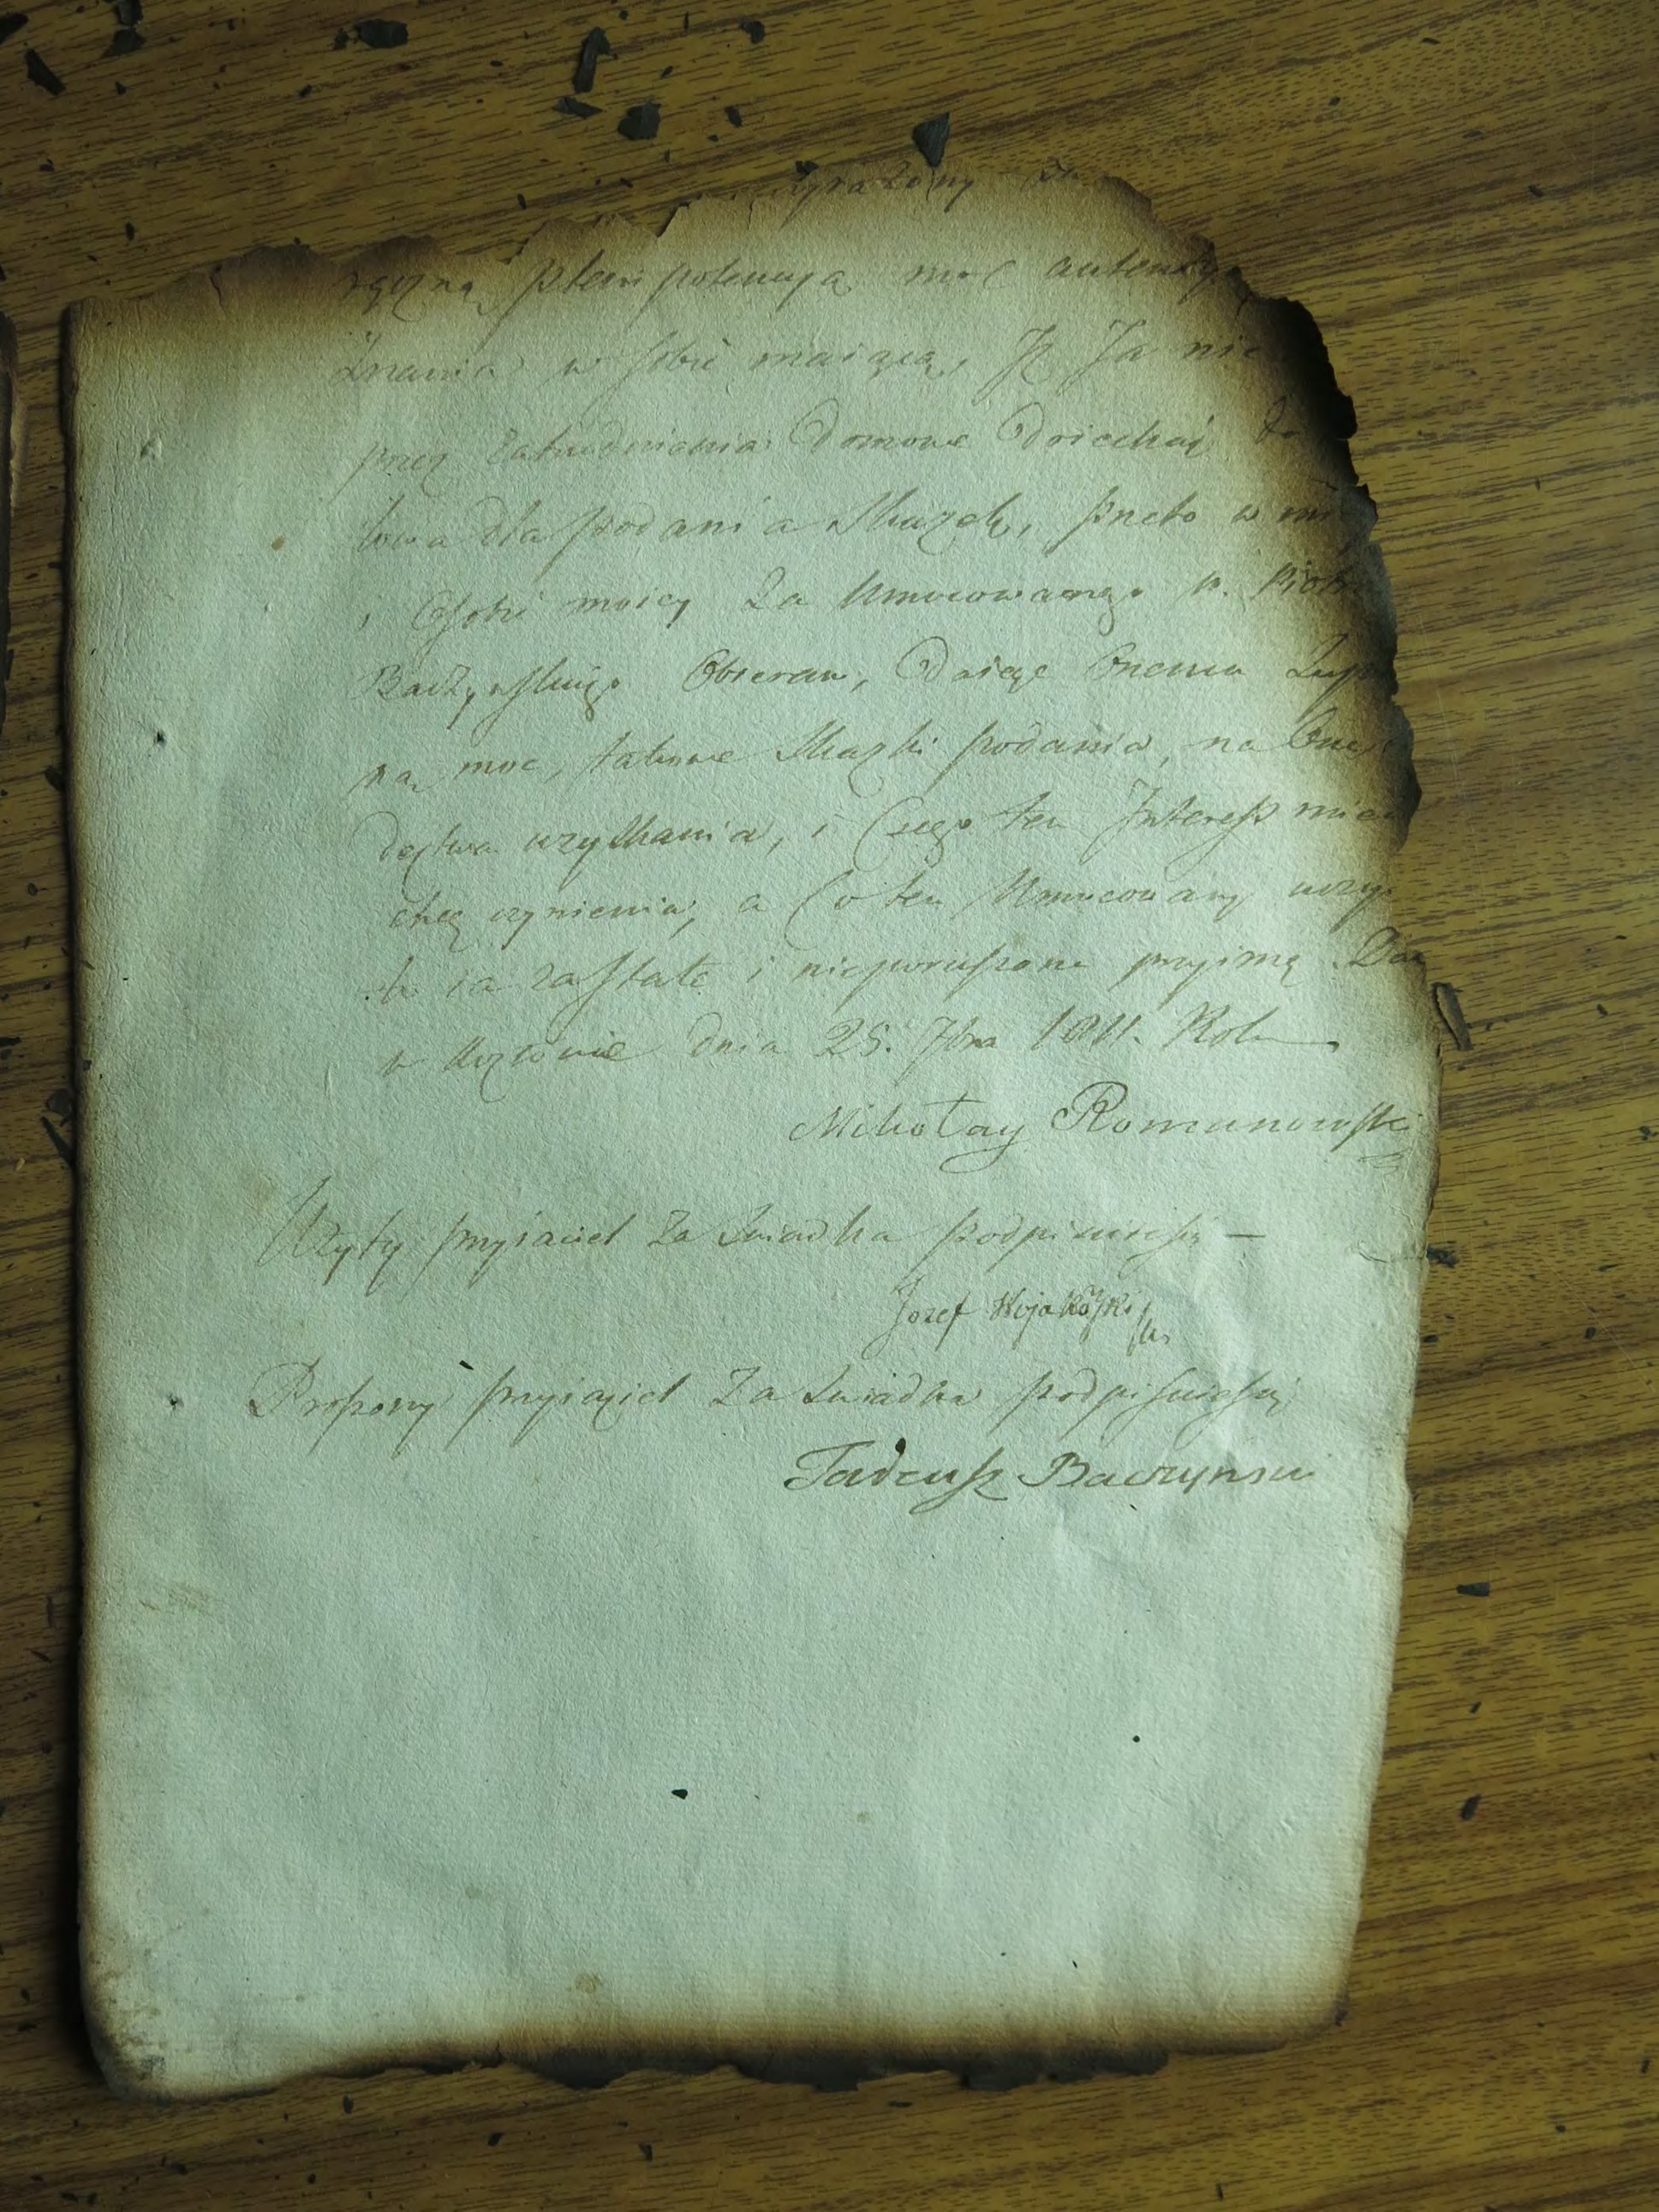 wyrażony
ręczną plenipotencyą moc autenty
znania w sobie maiącą, Jż Ja nie
przez zatrudnienia Domowe Doiechać do
towa dla podania Skazek, przeto w mi
i Osobie moiey za Umocowanego P. Piotr
Baczynskiego Obieram, Daiąc Onemu Zup
ną moc, takowe Skazki podania, na One
dectwa uzyskania, i Czego ten Interess mieć
chcę czynienia, a Co ten Umocowany uczy
to ia za stałe i nieporuszone przyimę. Dan
w dnia 25. 7bra 1811. Roku
Mikołay Romanowski
Użyty przyiaciel za Swiadka podpisuiesię —
Jozef Wojakowski
Proszony przyiaciel Za Swiadka podpisuiesię
Tadeusz Baczynski